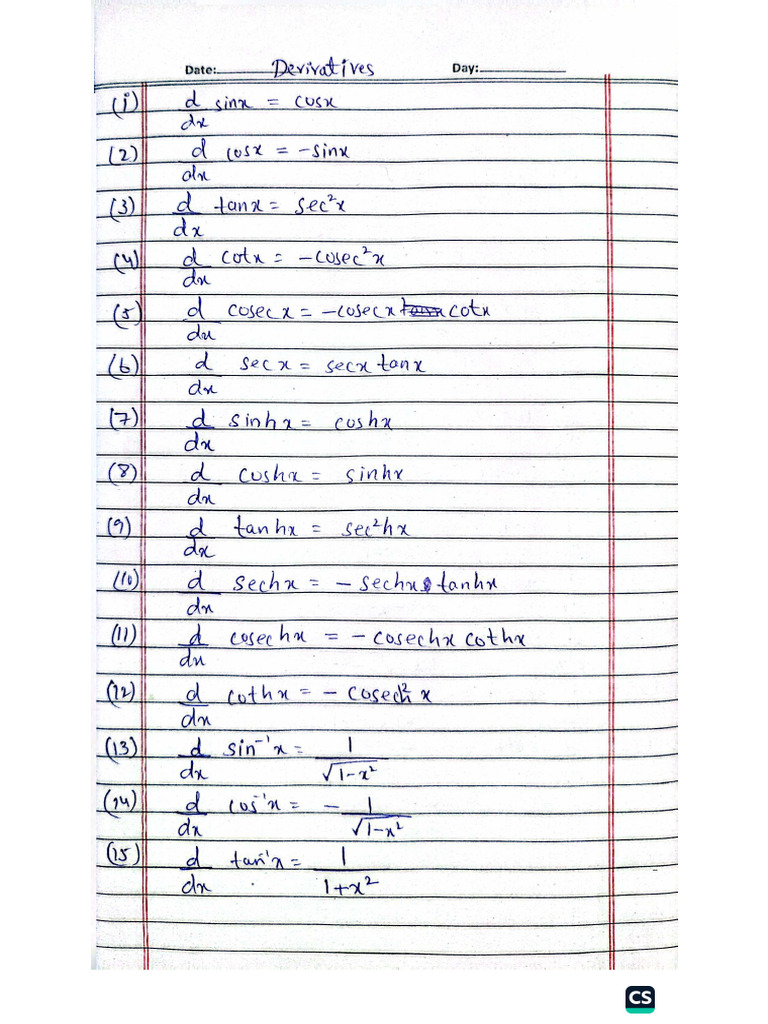 Date: Derivatives Day:
(1) d/dx sinx = cosx
(2) d/dx cosx = -sinx
(3) d/dx tanx = sec²x
(4) d/dx cotx = -cosec²x
(5) d/dx cosecx = -cosecx cotx
(6) d/dx secx = secx tanx
(7) d/dx sinhx = coshx
(8) d/dx coshx = sinhx
(9) d/dx tanhx = sec²hx
(10) d/dx sechx = - sechx tanhx
(11) d/dx cosechx = - cosechx cothx
(12) d/dx cothx = - cosech²x
(13) d/dx sin⁻¹x = 1/√1-x²
(14) d/dx cos⁻¹x = - 1/√1-x²
(15) d/dx tan⁻¹x = 1/1+x²
CS